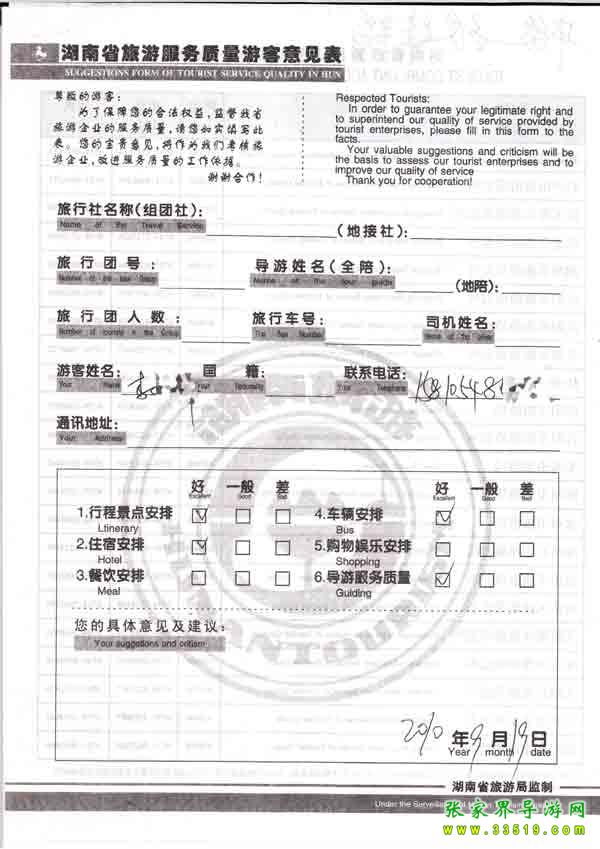 湖南省旅游服务质量游客意见表
SUGGESTIONS FORM OF TOURIST SERVICE QUALITY IN HUN
尊敬的游客:
为了保障您的合法权益,监督我省
旅游企业的服务质量,请您如实填写此
表。您的宝贵意见,将作为我们考核旅
游企业,改进服务质量的工作依据。
谢谢合作!
Respected Tourists:
In order to guarantee your legitimate right and
to superintend our quality of service provided by
tourist enterprises, please fill in this form to the
facts.
Your valuable suggestions and criticism will be
the basis to assess our tourist enterprises and to
improve our quality of service
Thank you for cooperation!
旅行社名称(组团社): (地接社):
Name of the Travel Service
旅行团号: 导游姓名(全陪): (地陪):
Number of the tour Group Name of the tour guide
旅行团人数: 旅行车号: 司机姓名:
Number of tourists in the Group The Bus Number Name of The driver
游客姓名: 国籍: 联系电话:
Your Name Your Nationality Your Telephone
通讯地址:
Your Address
好 一般 差 好 一般 差
Excellent Good Bad Excellent Good Bad
1.行程景点安排 4.车辆安排
Ltinerary Bus
2.住宿安排 5.购物娱乐安排
Hotel Shopping
3.餐饮安排 6.导游服务质量
Meal Guiding
您的具体意见及建议:
Your suggetions and critism
2010 年 9 月 19 日
Year month date
湖南省旅游局监制
Under the Surveillance of
张家界导游网
www.33519.com